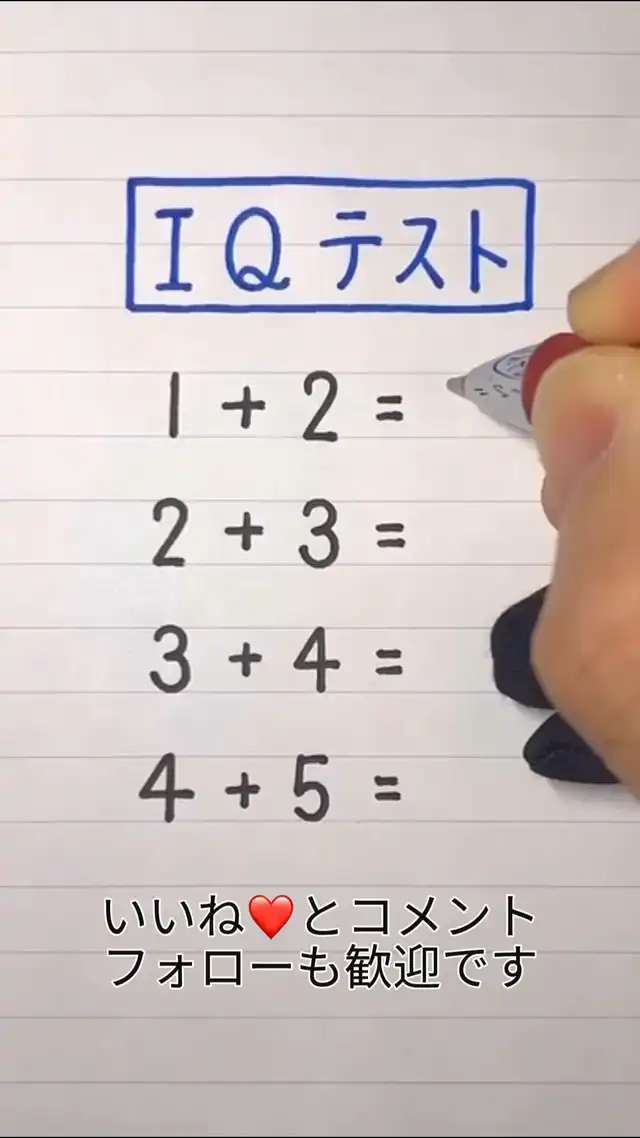 IQテスト
1 + 2 =
2 + 3 =
3 + 4 =
4 + 5 =
いいね❤️とコメント
フォローも歓迎です